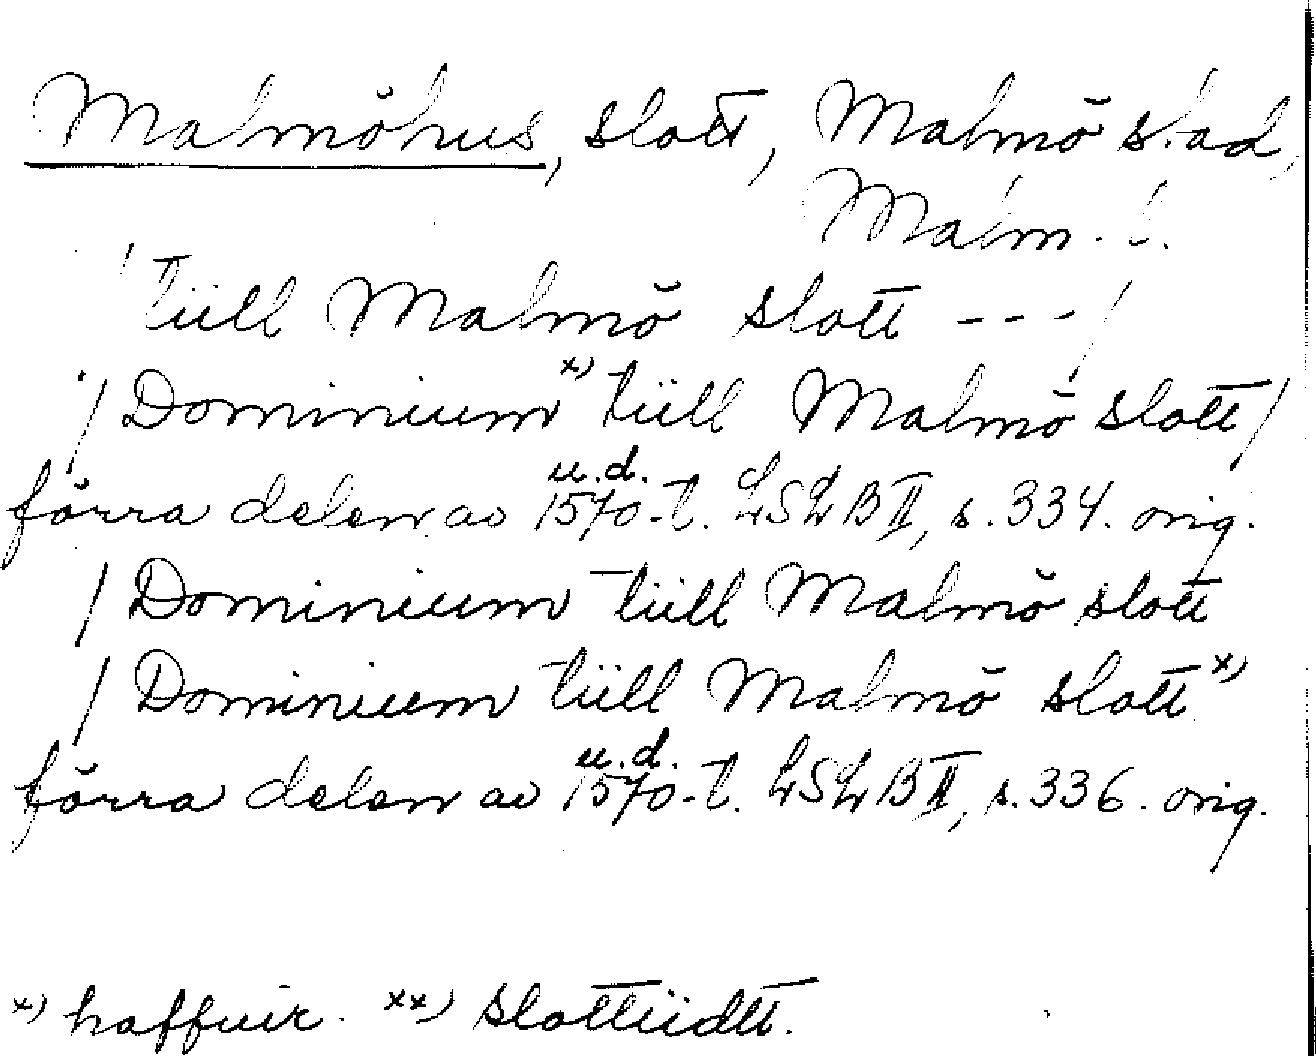 Malmöhus, slott, Malmö stad,
Malm. l.
/ tiill Malmö slott --- /
/ Dominium x) tiill Malmö slott /
u.d.
förra delen av 1570-t. LSLB II, s. 334. orig.
/ Dominium tiill Malmö slott
/ Dominium tiill Malmö slott x)
u.d.
förra delen av 1570-t. LSLB II, s. 336. orig.
x) haffuir. xx) slottiidtt.